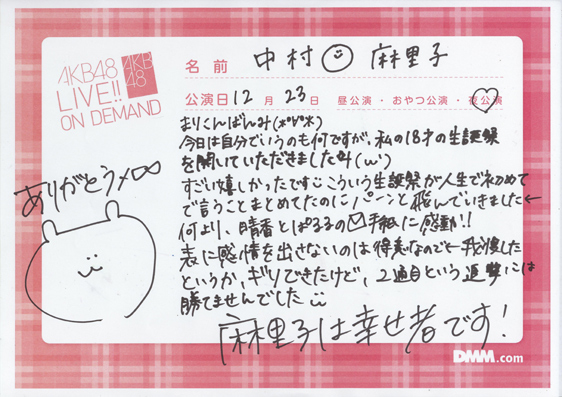 AKB48
LIVE!!
ON DEMAND
AKB
48
名前 中村 麻里子
公演日 12月23日 昼公演・おやつ公演・夜公演
まりこんばんみ(*º∀º*)
今日は自分でいうのも何ですが、私の18才の生誕祭
を開いていただきました (ω')
すごい嬉しかったです こういう生誕祭が人生で初めて
で言うことまとめてたのにパーンと飛んでいきました←
何より、晴香とぱるるの手紙に感動!!
表に感情を出さないのは得意なので←我慢した
というか、ギリできたけど、2通目という追撃には
勝てませんでした
麻里子は幸せ者です!
ありがとうメロ∞
DMM.com